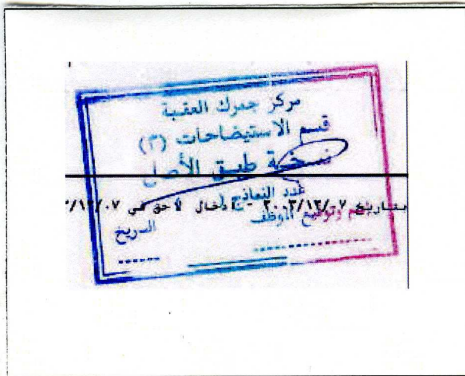 مركز جمرك العقبة
قسم الاستيضاحات (٣)
نسخة طبق الأصل
عدد النماذج (
بتاريخ ٢٠٠٣/١٢/٠٧ - ادخال لاحق في ١٢/٠٧/
وتوقيع الموظف
التاريخ